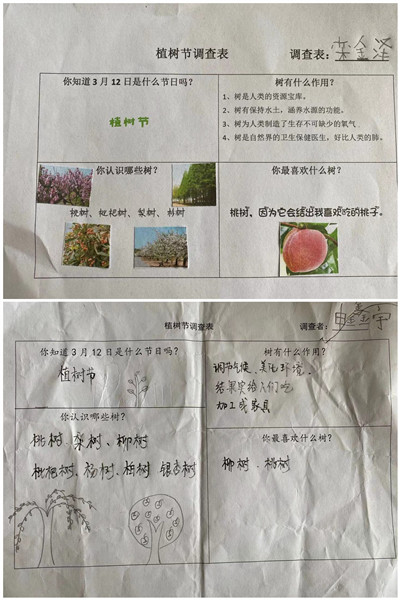 植树节调查表
调查表：栾金泽
你知道3月12日是什么节日吗？
植树节
树有什么作用？
1、树是人类的资源宝库。
2、树有保持水土，涵养水源的功能。
3、树为人类制造了生存不可缺少的氧气
4、树是自然界的卫生保健医生，好比人类的肺。
你认识哪些树？
桃树、枇杷树、梨树、柿树
你最喜欢什么树？
桃树，因为它会结出我喜欢吃的桃子。
植树节调查表
调查者：
你知道3月12日是什么节日吗？
植树节
树有什么作用？
调节气候、美化环境、
结果实给人们吃
加工成家具
你认识哪些树？
桃树、梨树、柳树
枇杷树、杨树、梅树、银杏树
你最喜欢什么树？
柳树、杨树